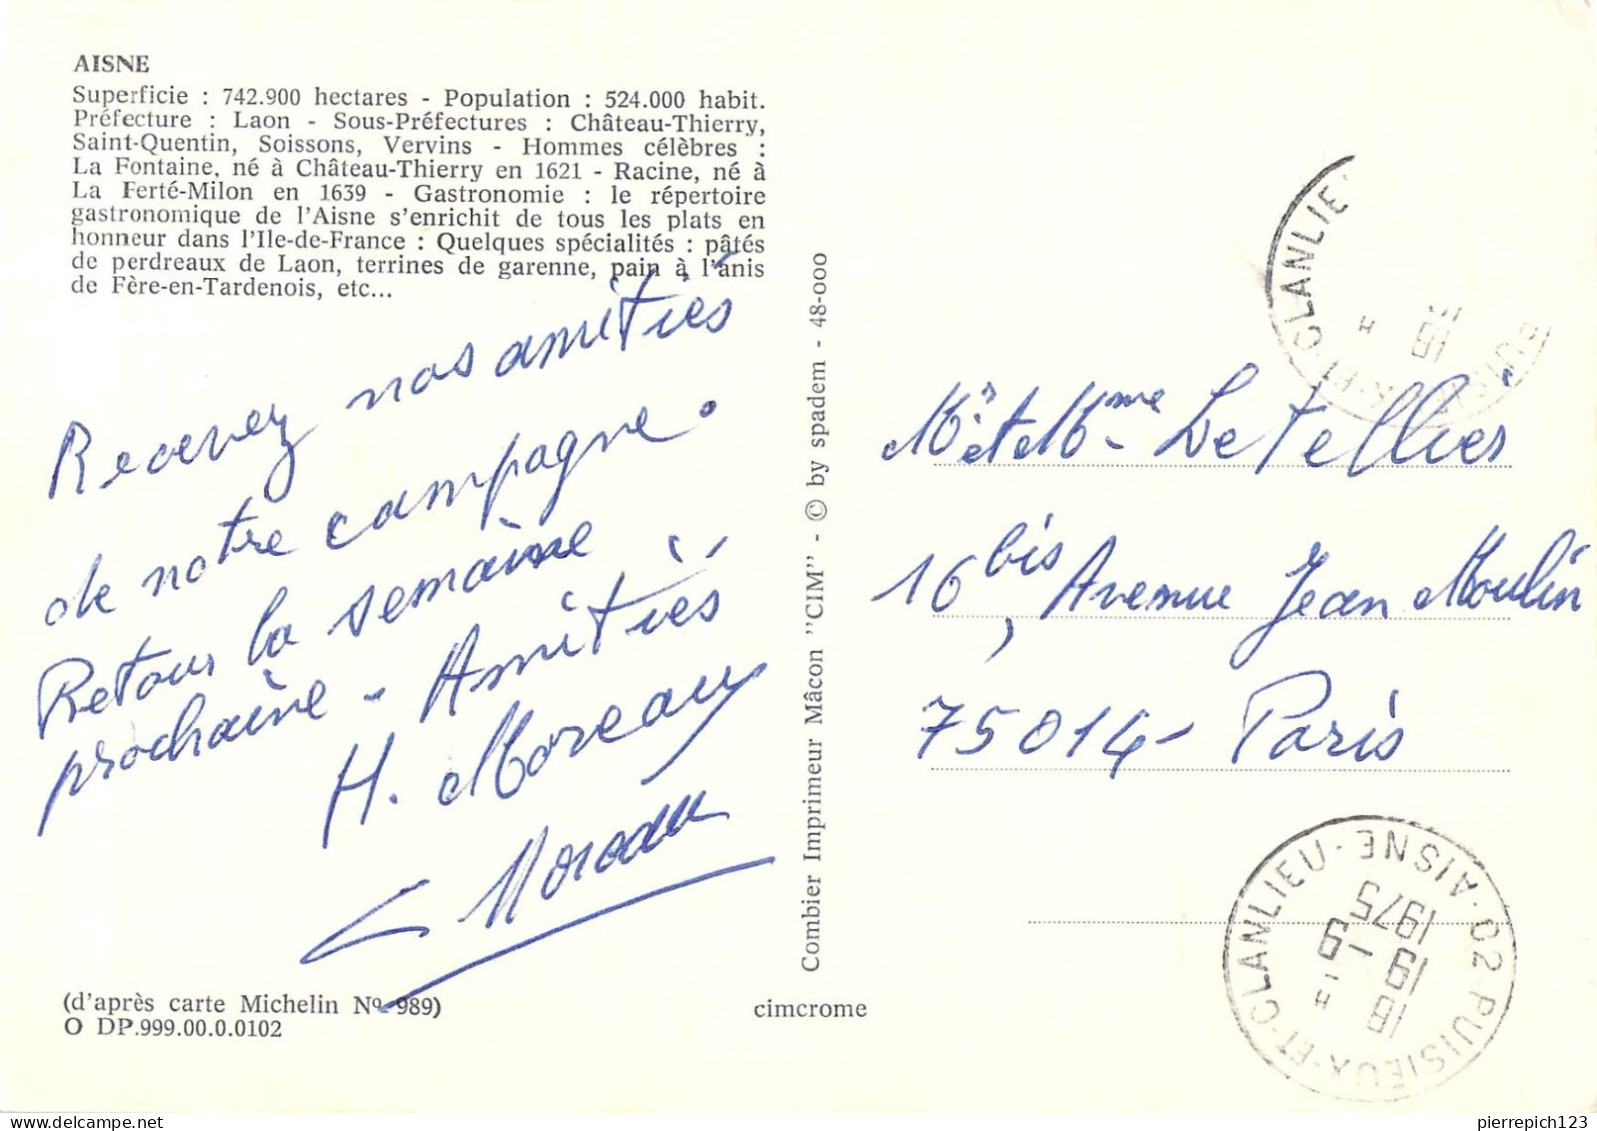 AISNE
Superficie : 742.900 hectares - Population : 524.000 habit.
Préfecture : Laon - Sous-Préfectures : Château-Thierry,
Saint-Quentin, Soissons, Vervins - Hommes célèbres :
La Fontaine, né à Château-Thierry en 1621 - Racine, né à
La Ferté-Milon en 1639 - Gastronomie : le répertoire
gastronomique de l'Aisne s'enrichit de tous les plats en
honneur dans l'Ile-de-France : Quelques spécialités : pâtés
de perdreaux de Laon, terrines de garenne, pain à l'anis
de Fère-en-Tardenois, etc...
Recevez nos amitiés
de notre campagne.
Retour la semaine
prochaine - Amitiés
H. Moreau
Moreau
(d'après carte Michelin Nº 989)
O DP.999.00.0.0102
Combier Imprimeur Mâcon "CIM" - © by spadem - 48-000
cimcrome
ET-CLANLIE
Mr et Mme Letellier
16 bis, Avenue Jean Moulin
75014 - Paris
02 PUISIEUX-ET-CLANLIEU - AISNE
18 H
19 -9
1975
pierrepich123